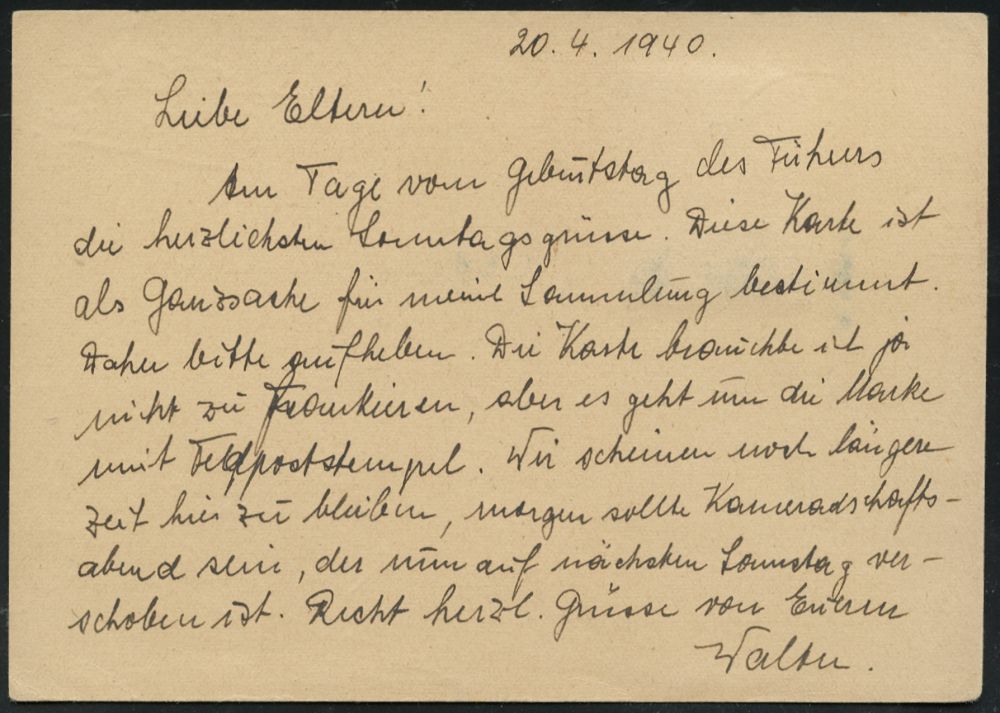 20. 4. 1940.
Liebe Eltern!
Am Tage vom Geburtstag des Führers
die herzlichsten Sonntagsgrüsse. Diese Karte ist
als Ganzsache für meine Sammlung bestimmt.
Daher bitte aufheben. Die Karte brauchte ich ja
nicht zu frankieren, aber es geht um die Marke
mit Feldpoststempel. Wir scheinen noch längere
Zeit hier zu bleiben, morgen sollte Kameradschafts-
abend sein, der nun auf nächsten Sonntag ver-
schoben ist. Recht herzl. Grüsse von Eurem
Walter.